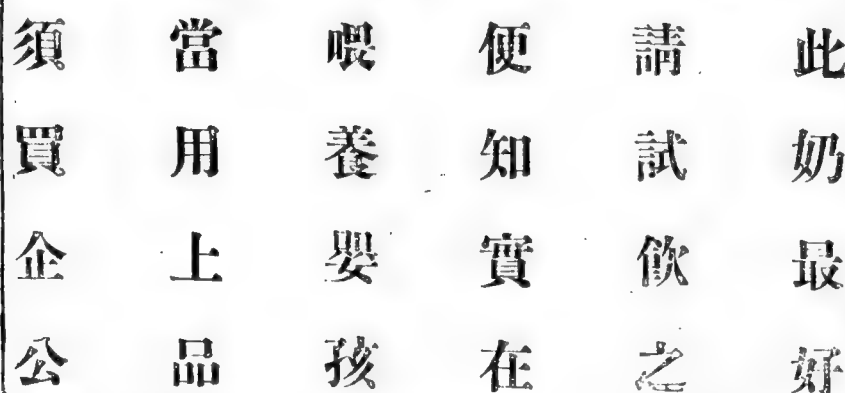 此奶最好
請試飲之
便知實在
喂養嬰孩
當用上品
須買企公